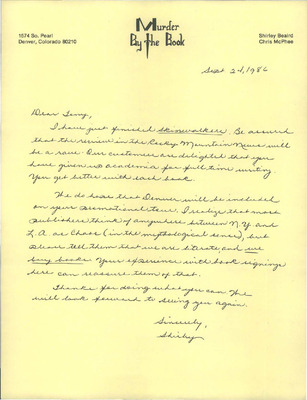 1574 So. Pearl
Denver, Colorado 80210
Murder
By The Book
Shirley Beaird
Chris McPhee
Sept 24, 1986
Dear Tony,
I have just finished Skinwalkers. Be assured
that the review in the Rocky Mountain News will
be a rave. Our customers are delighted that you
have given up academia for full time writing.
You get better with each book.
We do hope that Denver will be included
on your promotional tour. I realize that most
publishers think of anywhere between N.Y. and
L.A. as Chaos (in the mythological sense), but
please tell them that we are literate and we
buy books. Your experience with book signings
here can reassure them of that.
Thanks for doing what you can. We
will look forward to seeing you again.
Sincerely,
Shirley